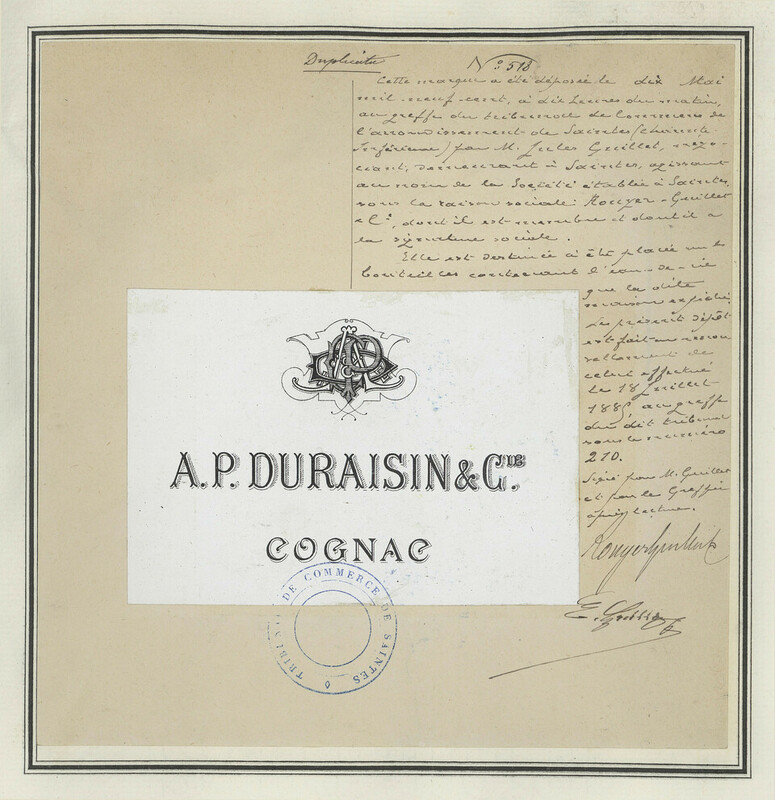 Duplicata
N° 518
Cette marque a été déposée le dix Mai
mil neuf cent, à dix heures du matin,
au greffe du tribunal de Commerce de
l'arrondissement de Saintes (Charente
Inférieure) par M. Jules Guillet, négo-
ciant, demeurant à Saintes, agissant
au nom de la Société établie à Saintes,
sous la raison sociale: Rouyer-Guillet
& Cie, dont il est membre et dont il a
la signature sociale.
Elle est destinée à être placée sur
bouteilles contenant l'eau-de-vie
que la dite
maison expédie.
Le présent dépôt
est fait en renou
vellement de
celui effectué
le 18 Juillet
1885 au greffe
du dit tribunal
sous le numéro
210.
Signé par M. Guillet
et par le Greffier
après lecture.
Rouyer Guillet
A.P. DURAISIN & CIE.
COGNAC
TRIBUNAL DE COMMERCE DE SAINTES